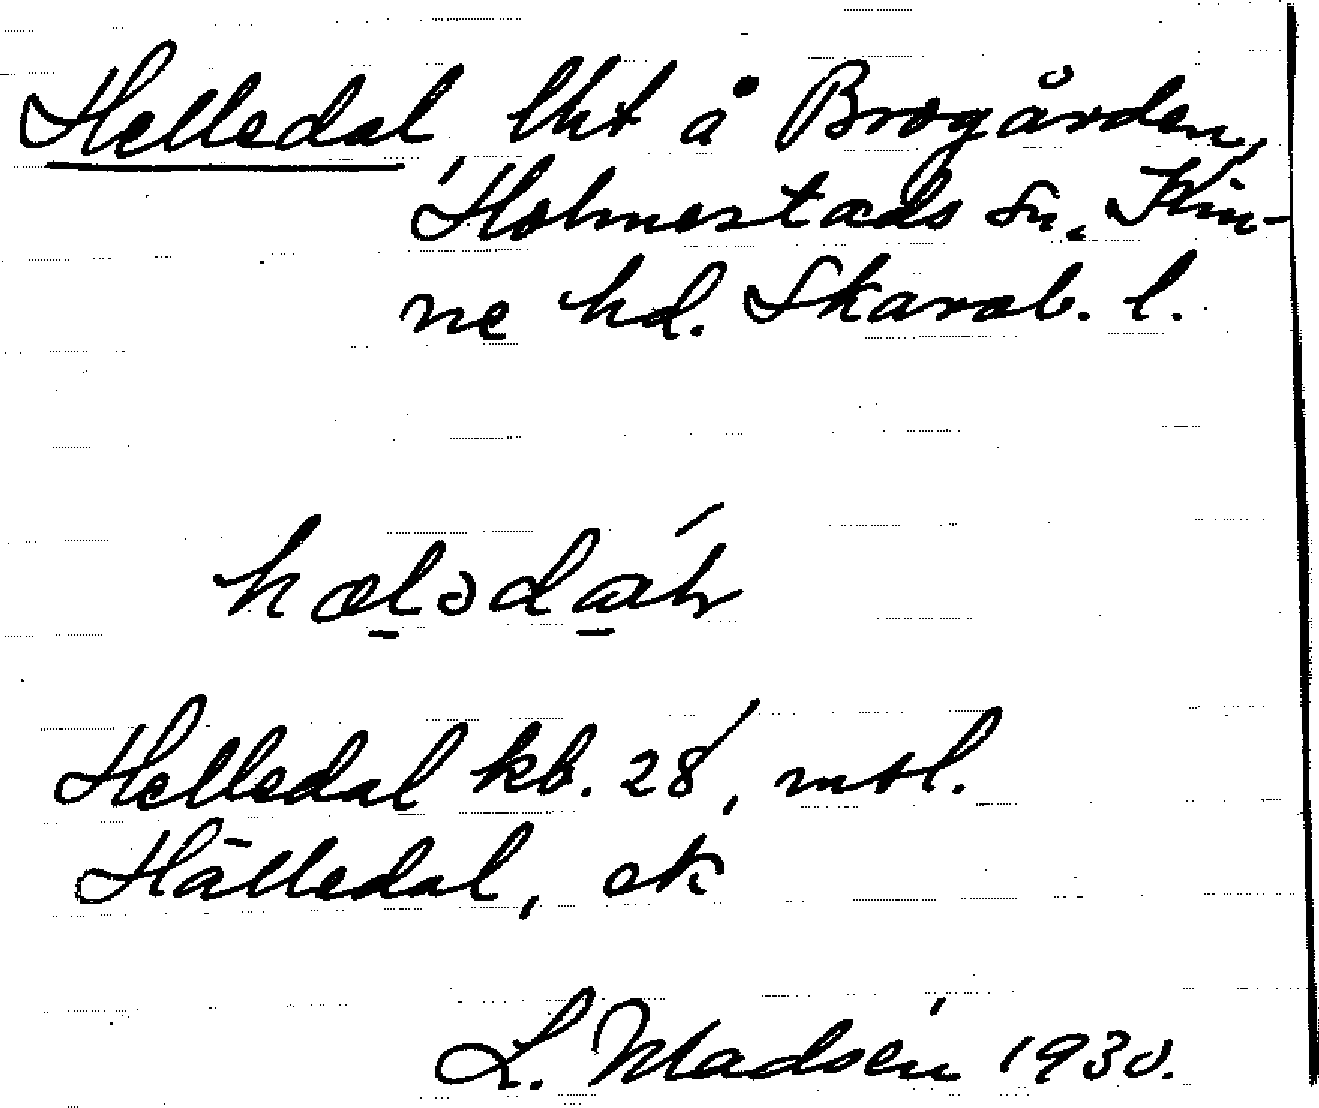 Helledal lht å Brogården,
Holmestads sn, Kin-
ne hd. Skarab. l.
hælədaḷ
Helledal kb. 28, mtl.
Hälledal, ek
L. Madsén 1930.